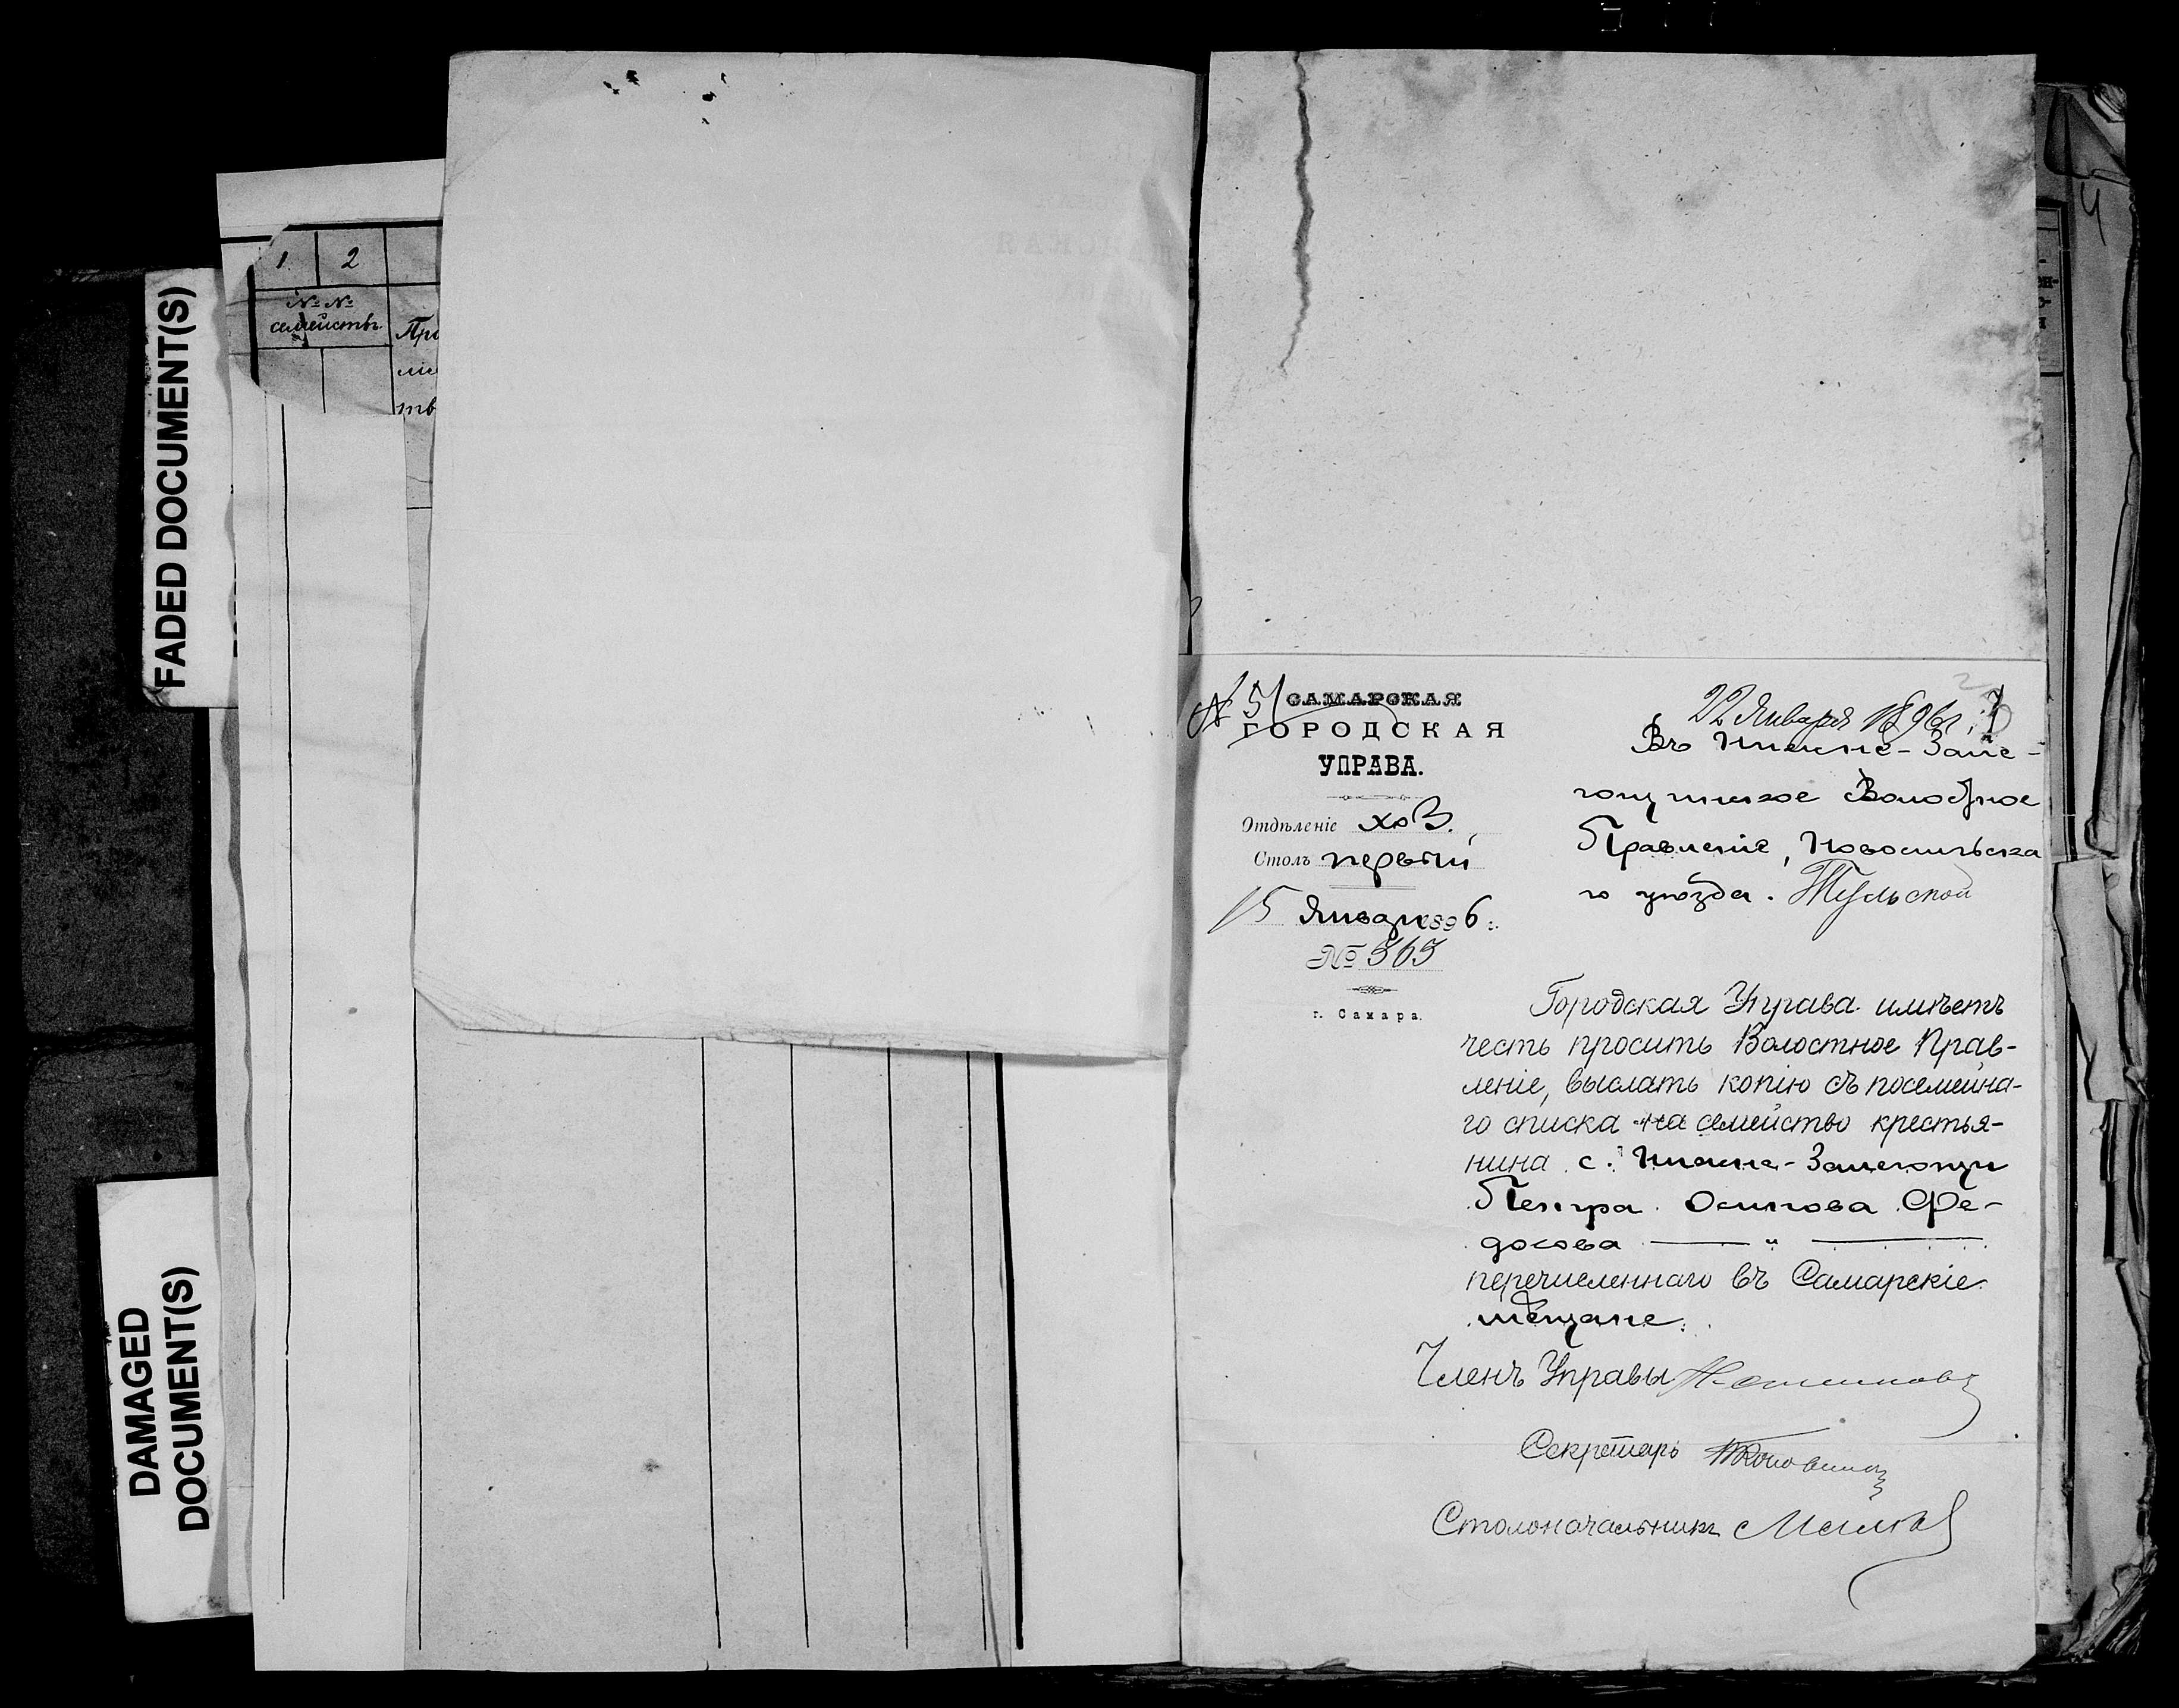 FADED DOCUMENT(S)
DAMAGED
DOCUMENT(S)
1. 2
№ №
семействъ
Пр
ли
тв
№ 51
САМАРСКАЯ
ГОРОДСКАЯ
УПРАВА.
Отдѣленіе хоз.
Столъ первый
15 Января 1896 г.
№ 365
г. Самара.
22 Января 1896 г.
Въ Нижне-Зале-
гощинское Волостное
Правленіе, Новосильска
го уѣзда. Тульской
Городская Управа имѣетъ
честь просить Волостное Прав-
леніе, выслать копію съ посемейна-
го списка на семейство крестья-
нина с. Нижне-Залегощи
Петра Осипова Фе-
досова — " —
перечисленнаго въ Самарскіе
мѣщане.
Членъ Управы
Секретарь
Столоначальникъ
4